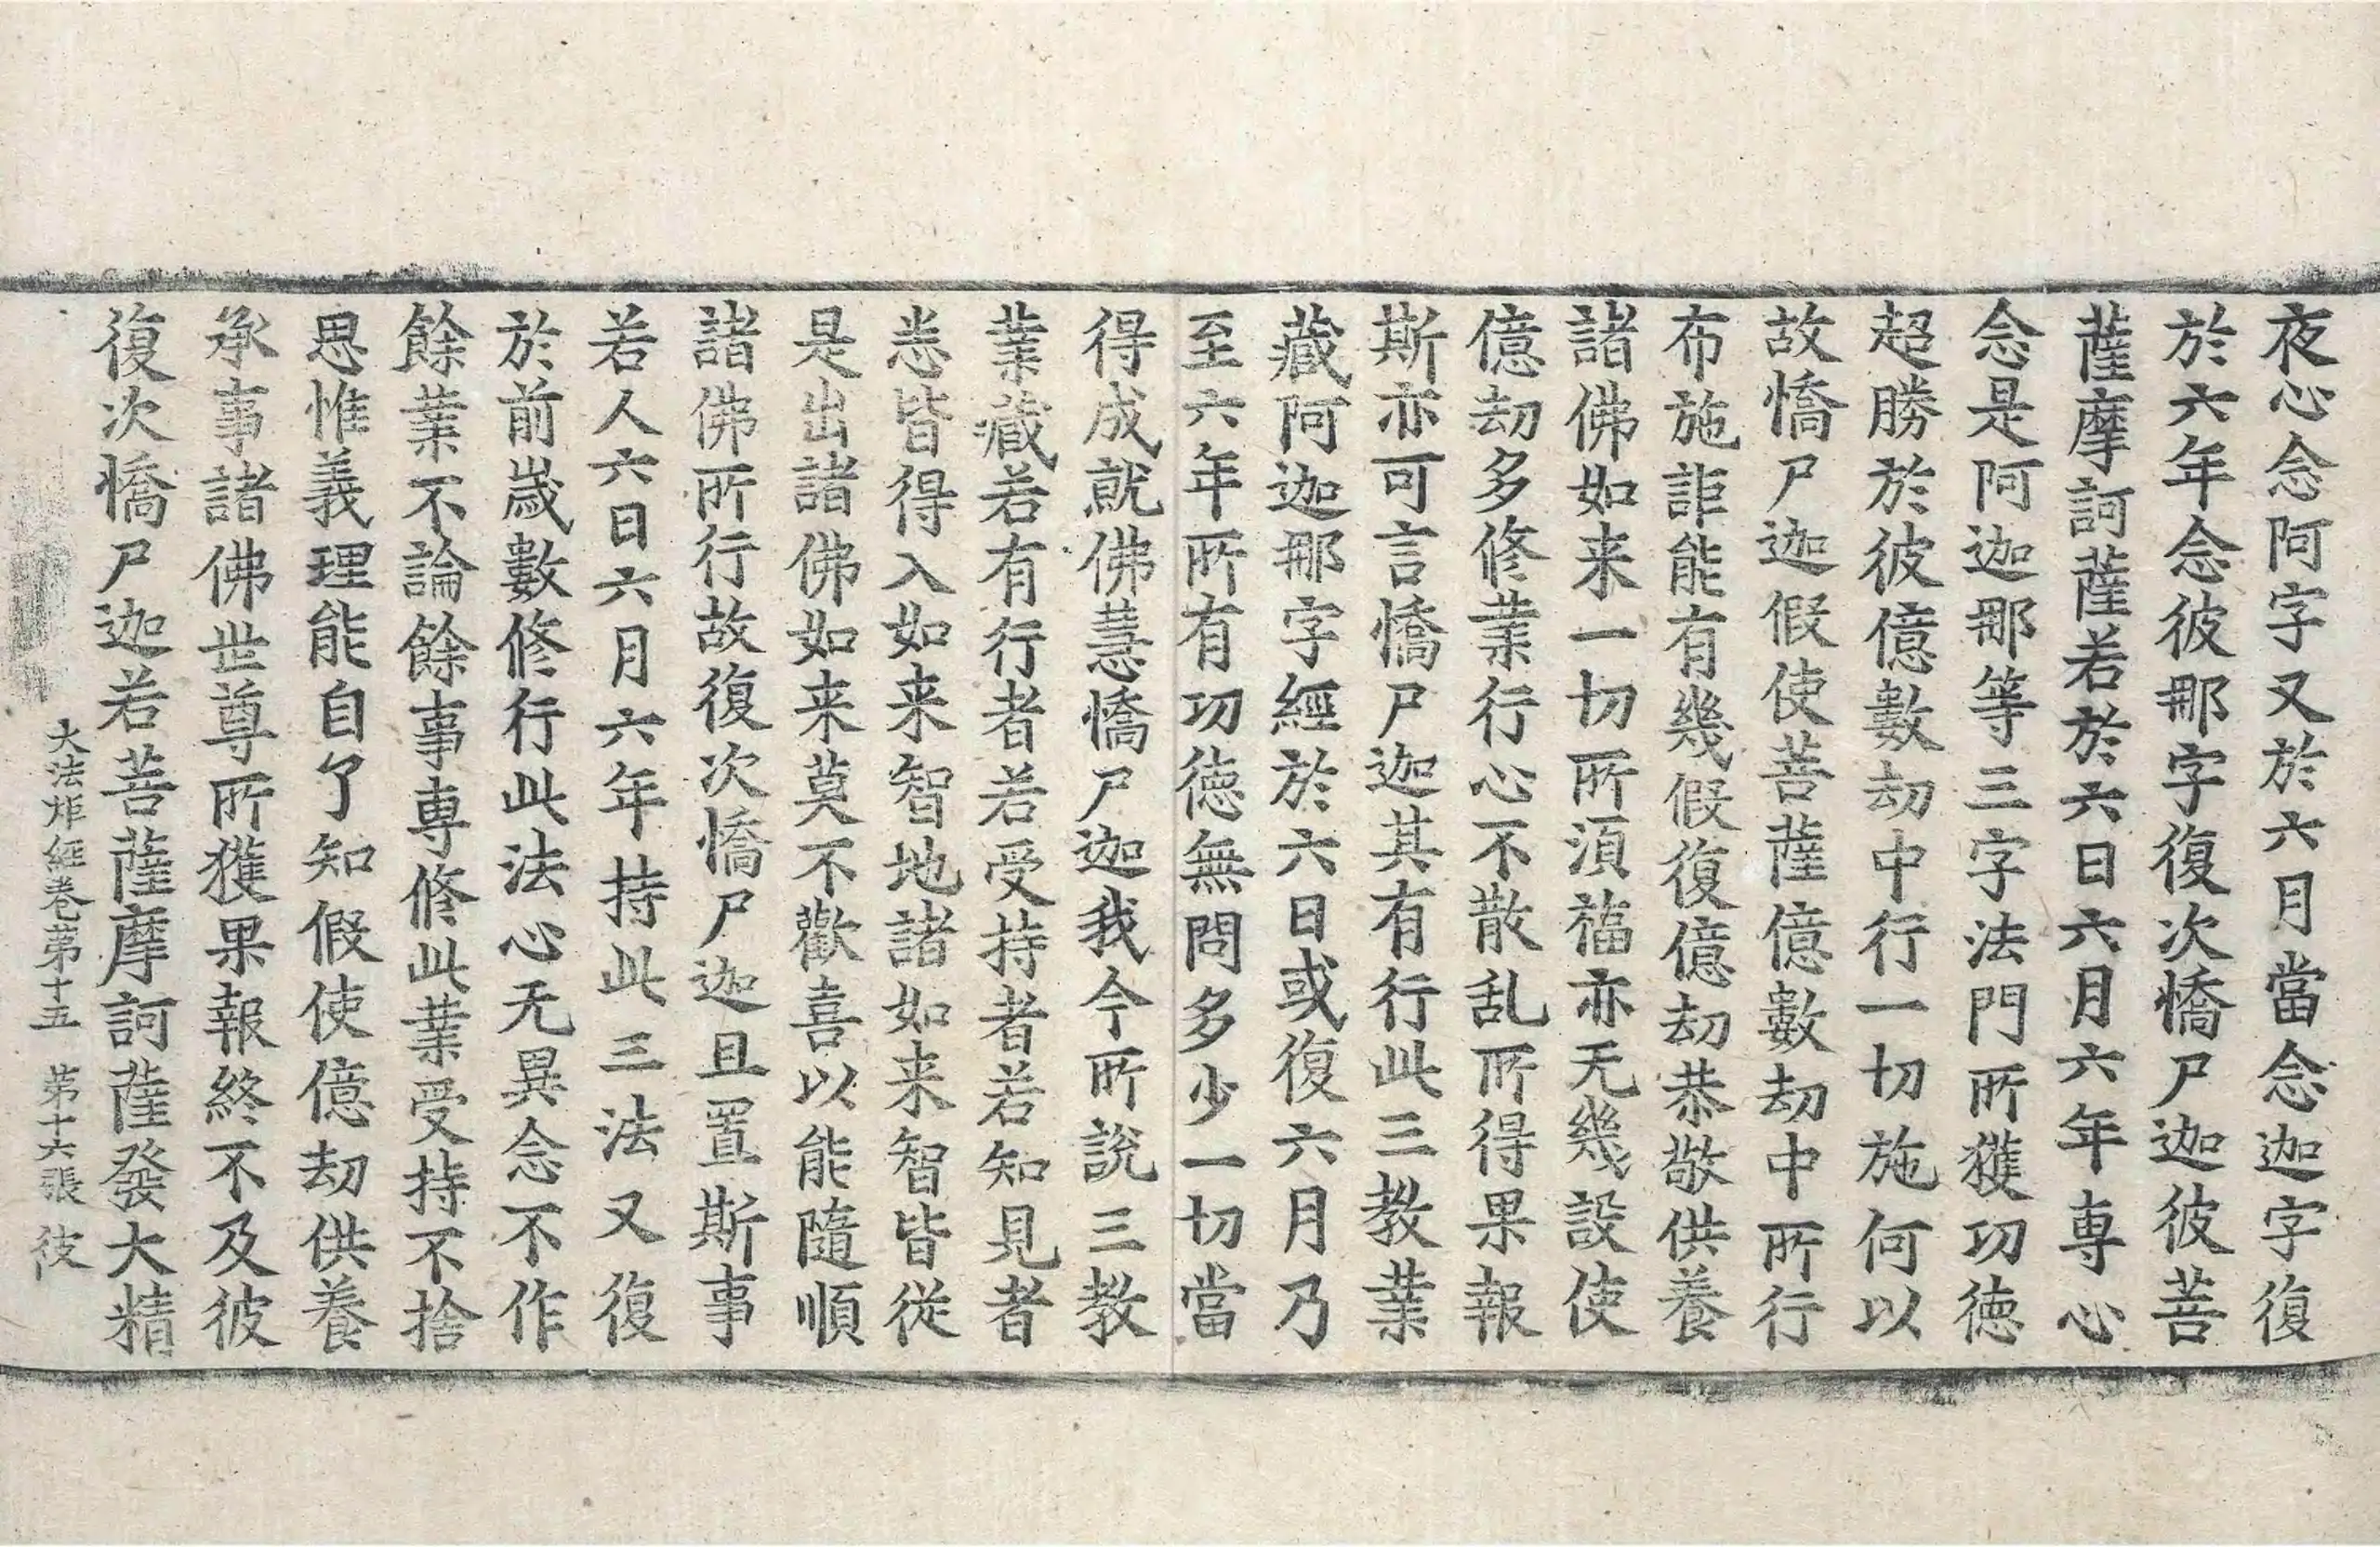 夜心念阿字又於六月當念迦字復
於六年念彼那字復次憍尸迦彼菩
薩摩訶薩若於六日六月六年專心
念是阿迦那等三字法門所獲功德
超勝於彼億數劫中行一切施何以
故憍尸迦假使菩薩億數劫中所行
布施詎能有幾假復億劫恭敬供養
諸佛如来一切所湏福亦无幾設使
億劫多修業行心不散乱所得果報
斯亦可言憍尸迦其有行此三教業
藏阿迦那字經於六日或復六月乃
至六年所有功德無問多少一切當
得成就佛慧憍尸迦我今所說三教
業藏若有行者若受持者若知見者
恙皆得入如来智地諸如来智皆從
是出諸佛如来莫不歡喜以能隨順
諸佛所行故復次憍尸迦且置斯事
若人六日六月六年持此三法又復
於前歲數修行此法心无異念不作
餘業不論餘事專修此業受持不捨
思惟義理能自了知假使億劫供養
承事諸佛世尊所獲果報終不及彼
復次憍尸迦若菩薩摩訶薩發大精
大法炬経卷第十五 第十六張 彼